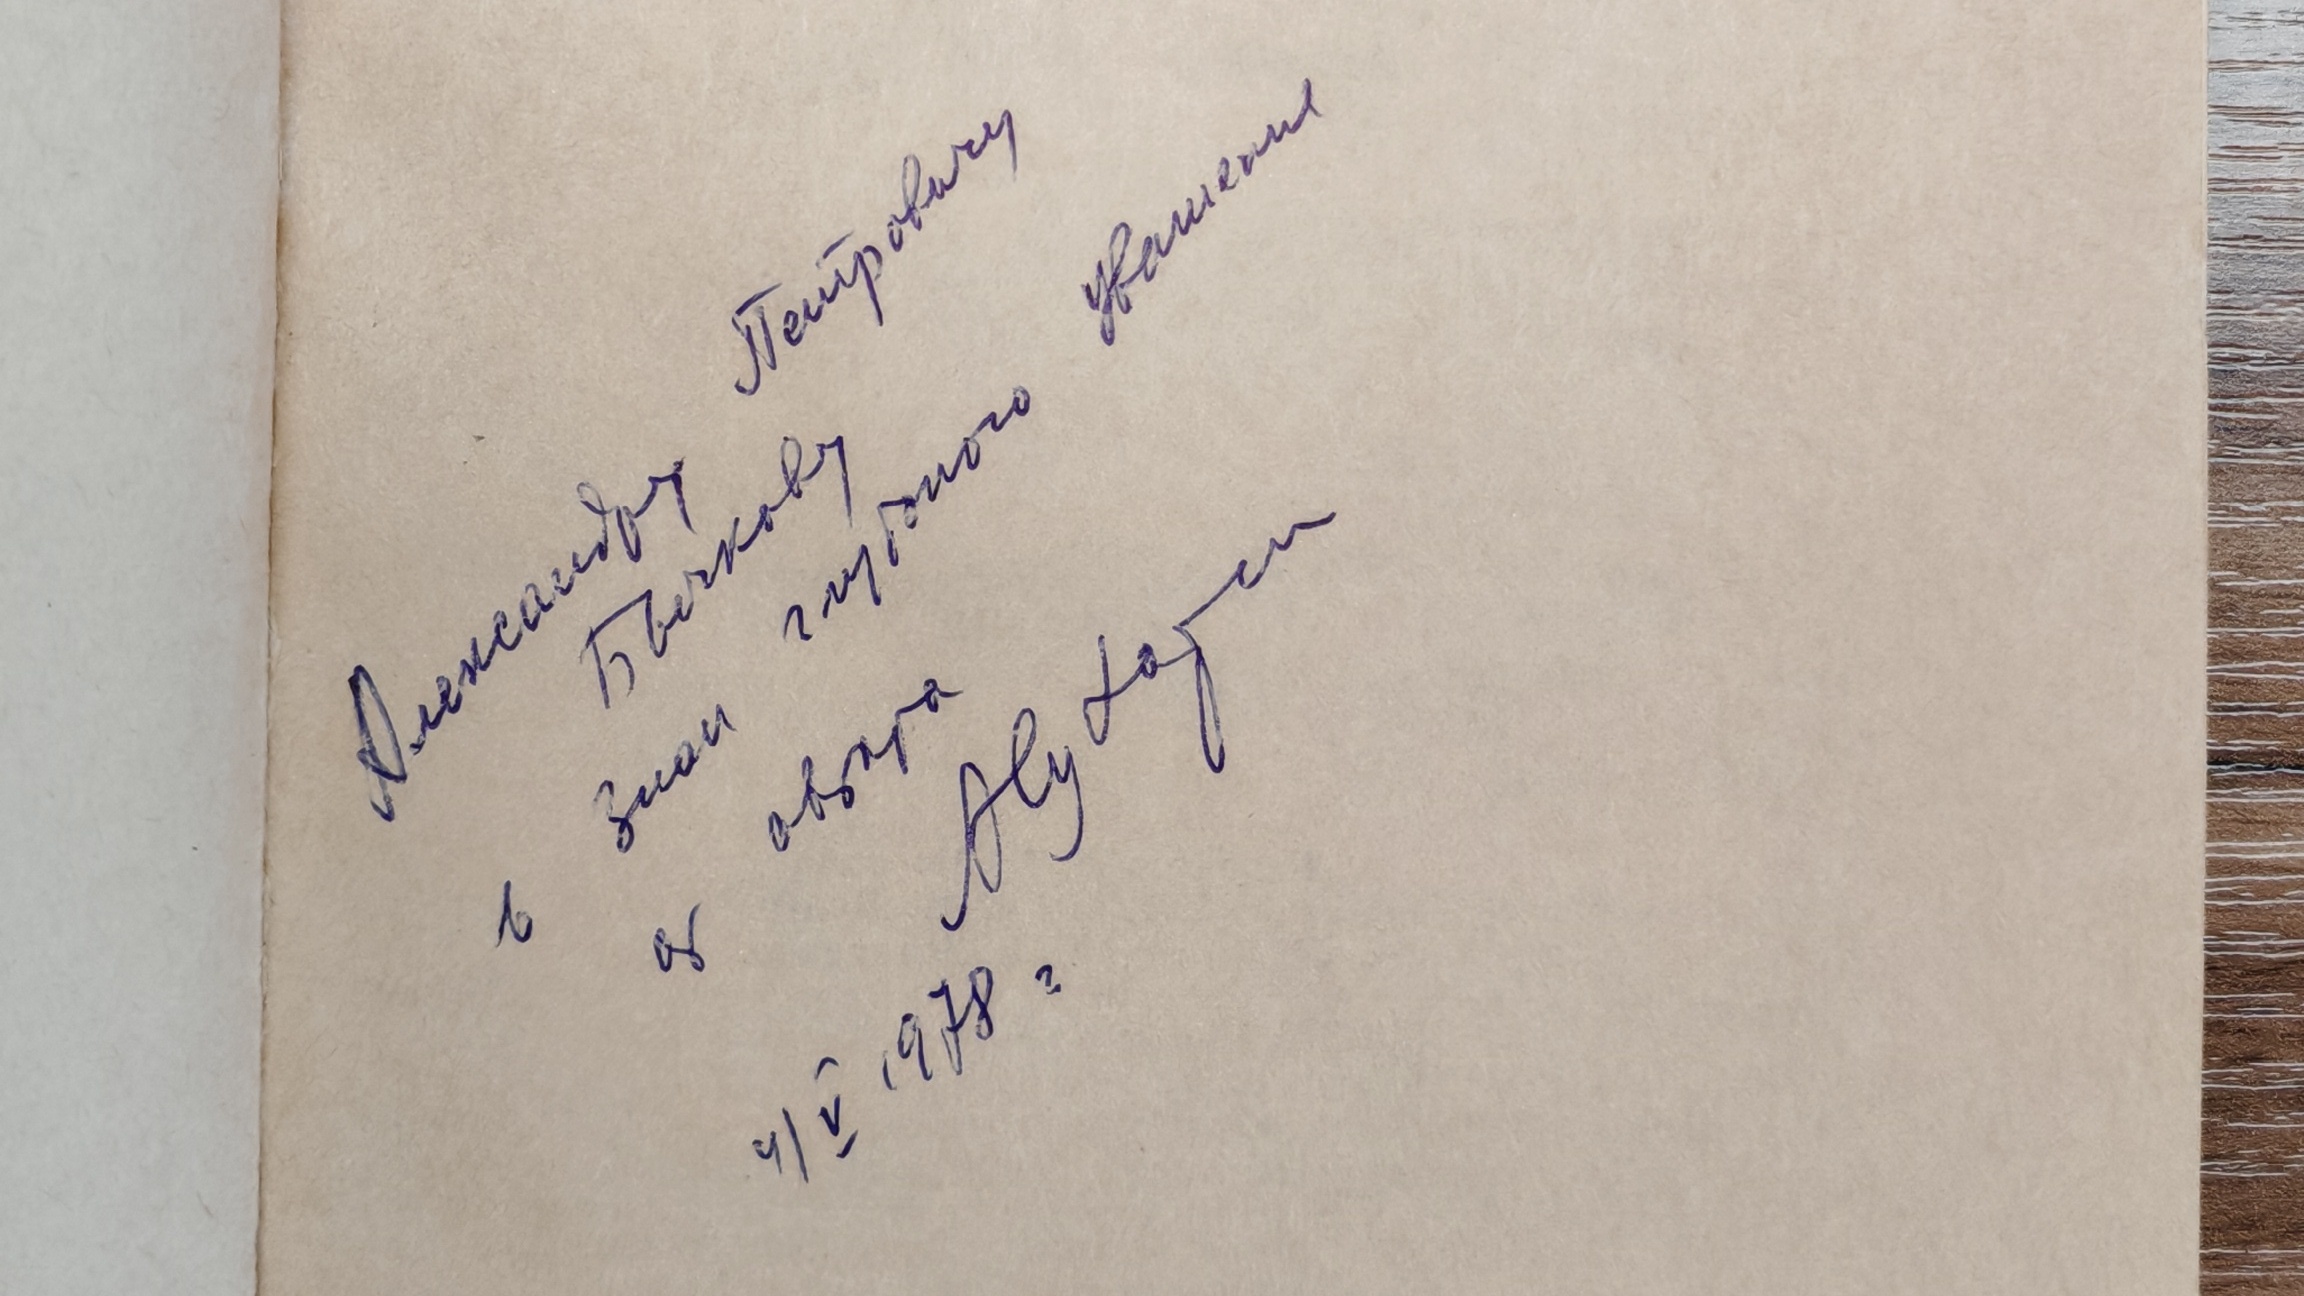 Александру Петровичу
Бычкову
в знак глубокого уважения
от автора
4/V 1978 г